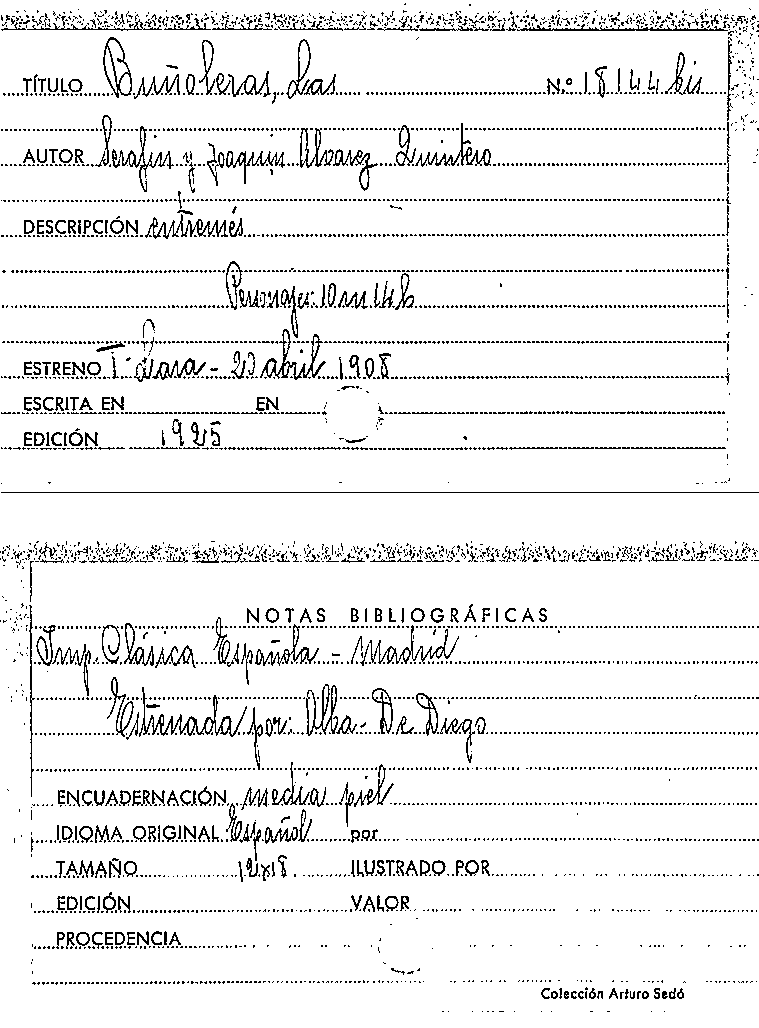 TÍTULO Buñoleras, Las N.º 18144 bis
AUTOR Serafin y Joaquin Alvarez Quintero
DESCRIPCIÓN entremés
Personajes: 10 m 14 h
ESTRENO T. Lara - 23 abril 1908
ESCRITA EN EN
EDICIÓN 1925
NOTAS BIBLIOGRÁFICAS
Imp. Clásica Española - Madrid
Estrenada por: Alba - De Diego
ENCUADERNACIÓN media piel
IDIOMA ORIGINAL Español por
TAMAÑO 12x18. ILUSTRADO POR
EDICIÓN VALOR
PROCEDENCIA
Colección Arturo Sedó